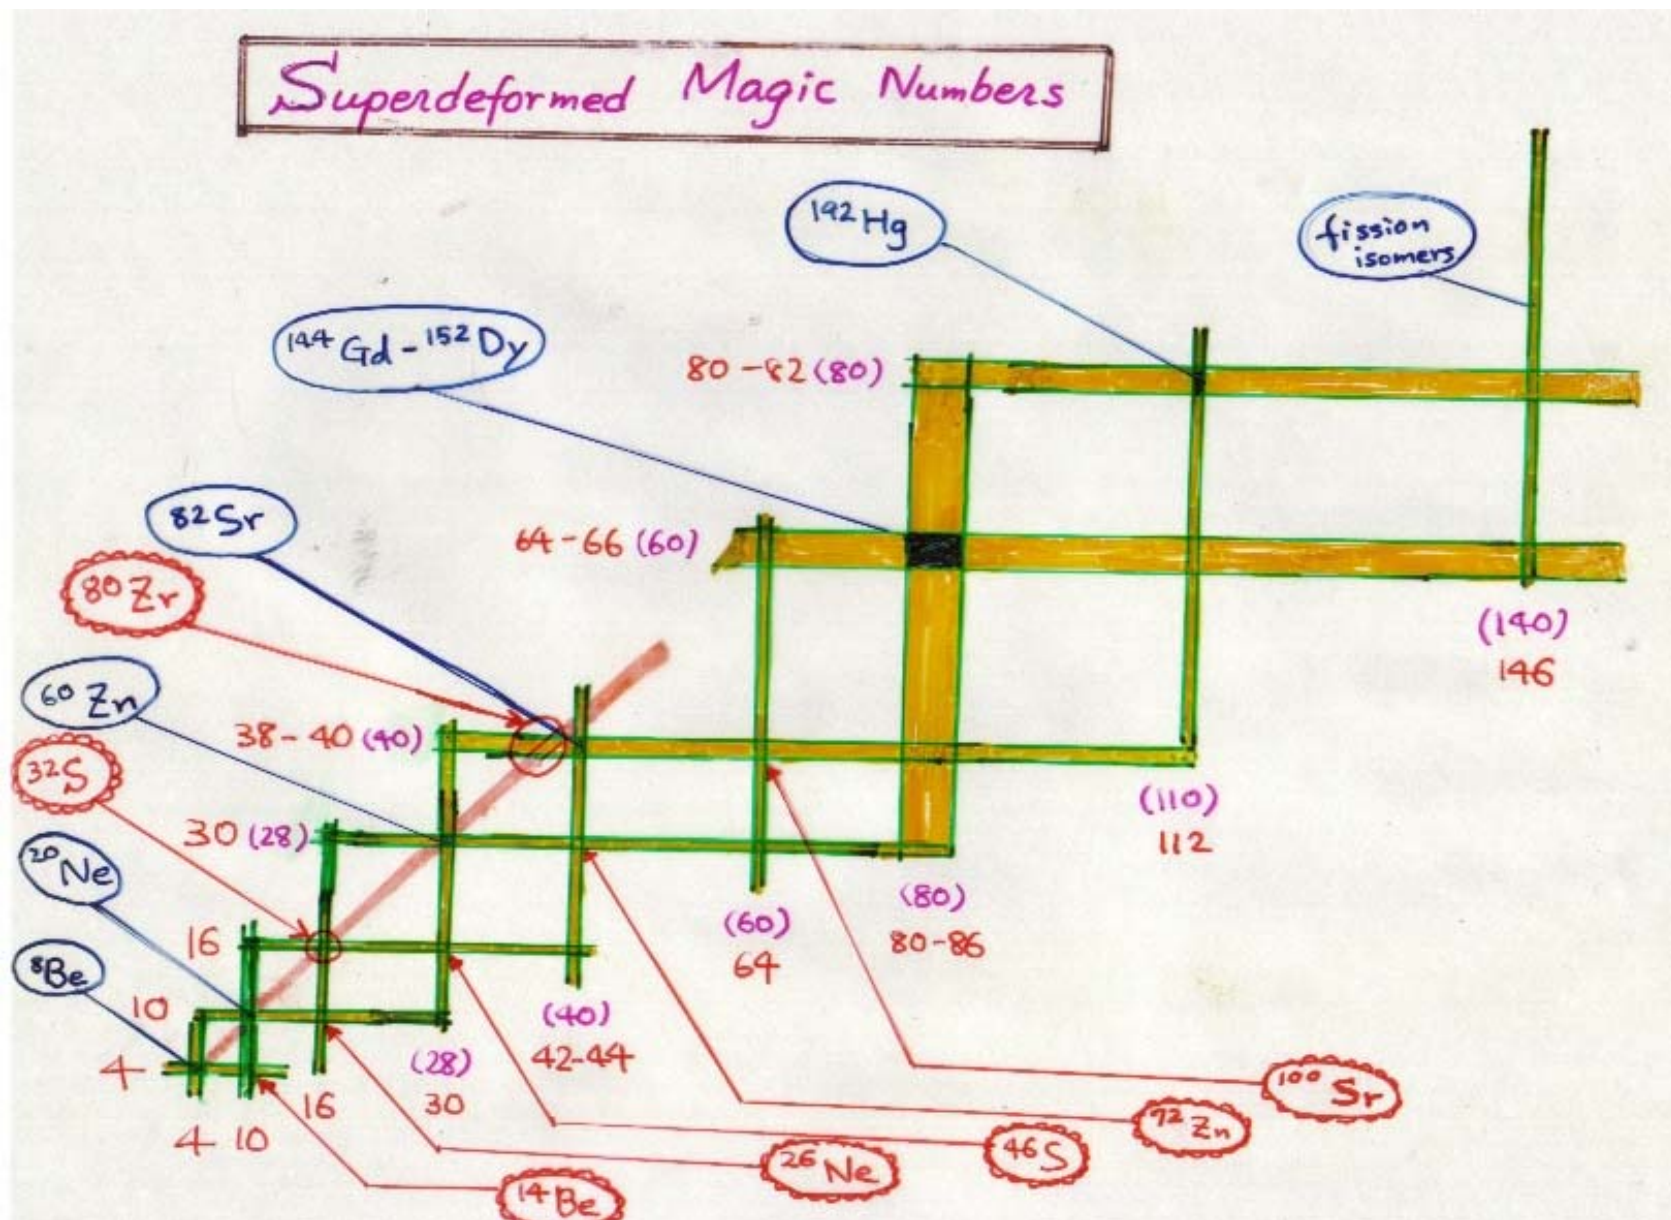 Superdeformed Magic Numbers
192Hg
fission
isomers
144Gd-152Dy
80-82(80)
82Sr
64-66(60)
80Zr
(140)
146
60Zn
38-40(40)
32S
(110)
112
30(28)
20Ne
(60)
64
(80)
80-86
16
8Be
10
(40)
42-44
4
(28)
30
16
4 10
100Sr
72Zn
46S
26Ne
14Be